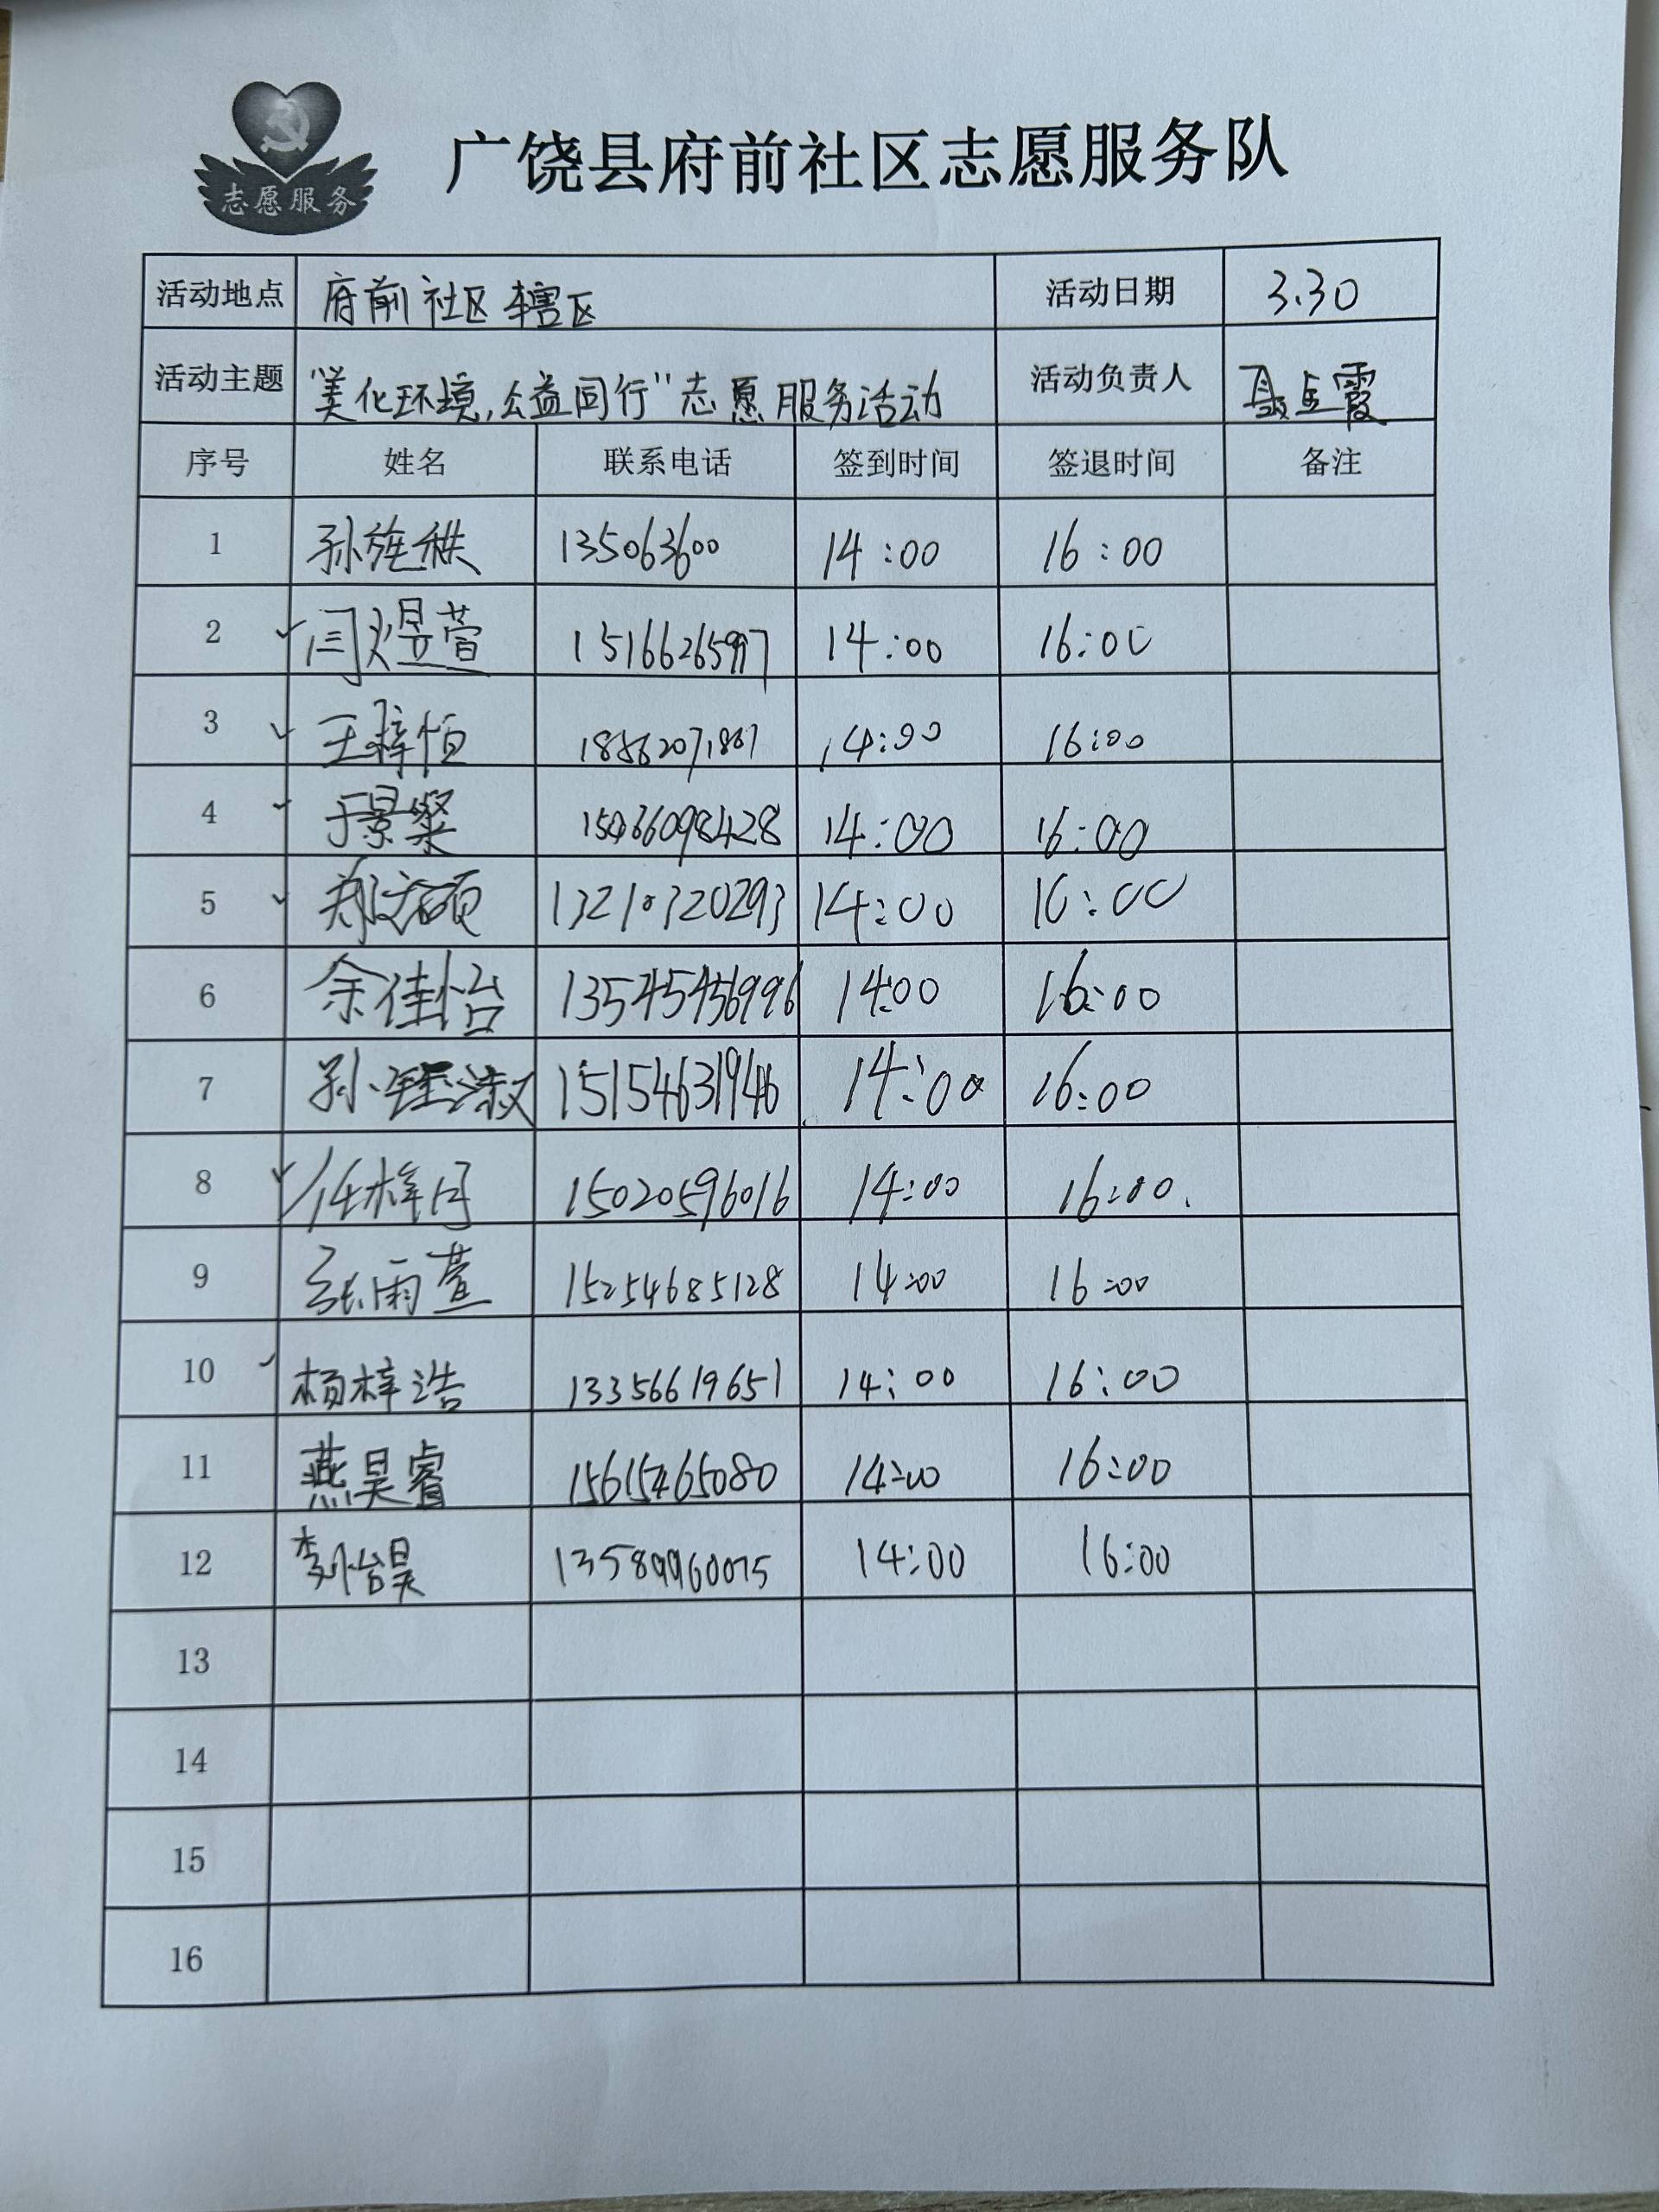 志愿服务
广饶县府前社区志愿服务队
活动地点 府前社区辖区 活动日期 3.30
活动主题 "美化环境,公益同行"志愿服务活动 活动负责人 霞
序号 姓名 联系电话 签到时间 签退时间 备注
1 孙 秩 135063600 14:00 16:00
2 闫煜萱 15166265997 14:00 16:00
3 王梓恒 14:00 16:00
4 于景粲 14:00 16:00
5 郑 硕 13210320293 14:00 16:00
6 余佳怡 14:00 16:00
7 孙 淑 15154631946 14:00 16:00
8 任梓月 15020596016 14:00 16:00.
9 张雨萱 15254685128 14:00 16:00
10 杨梓浩 13356619651 14:00 16:00
11 燕昊睿 15615465080 14:00 16:00
12 李怡昊 13589960075 14:00 16:00
13
14
15
16